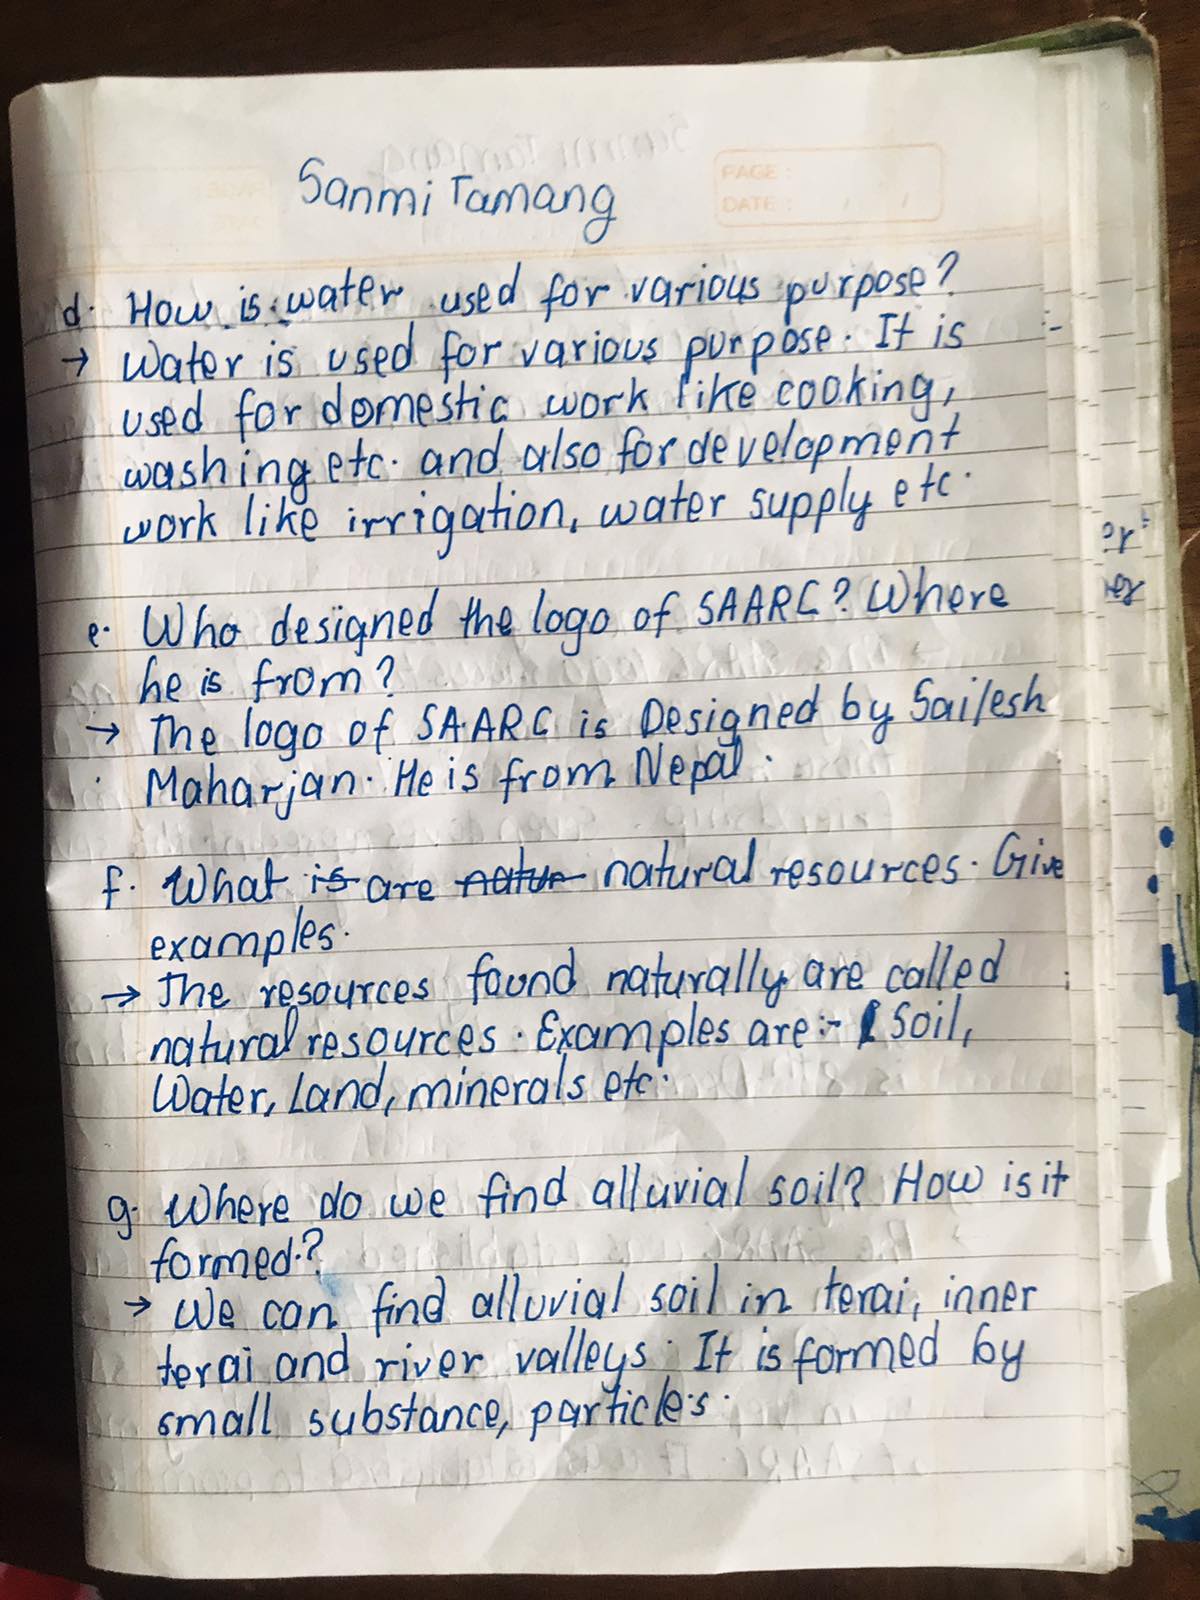 Sanmi Tamang
PAGE :
DATE : / /
d. How is water used for various purpose?
→ Water is used for various purpose. It is
used for domestic work like cooking,
washing etc. and also for development
work like irrigation, water supply etc.
e. Who designed the logo of SAARC? Where
he is from?
→ The logo of SAARC is Designed by Sailesh
Maharjan. He is from Nepal.
f. What is are natur natural resources. Give
examples.
→ The resources found naturally are called
natural resources. Examples are:- Soil,
Water, Land, minerals etc.
g. Where do we find alluvial soil? How is it
formed.?
→ We can find alluvial soil in terai, inner
terai and river valleys. It is formed by
small substance, particles.